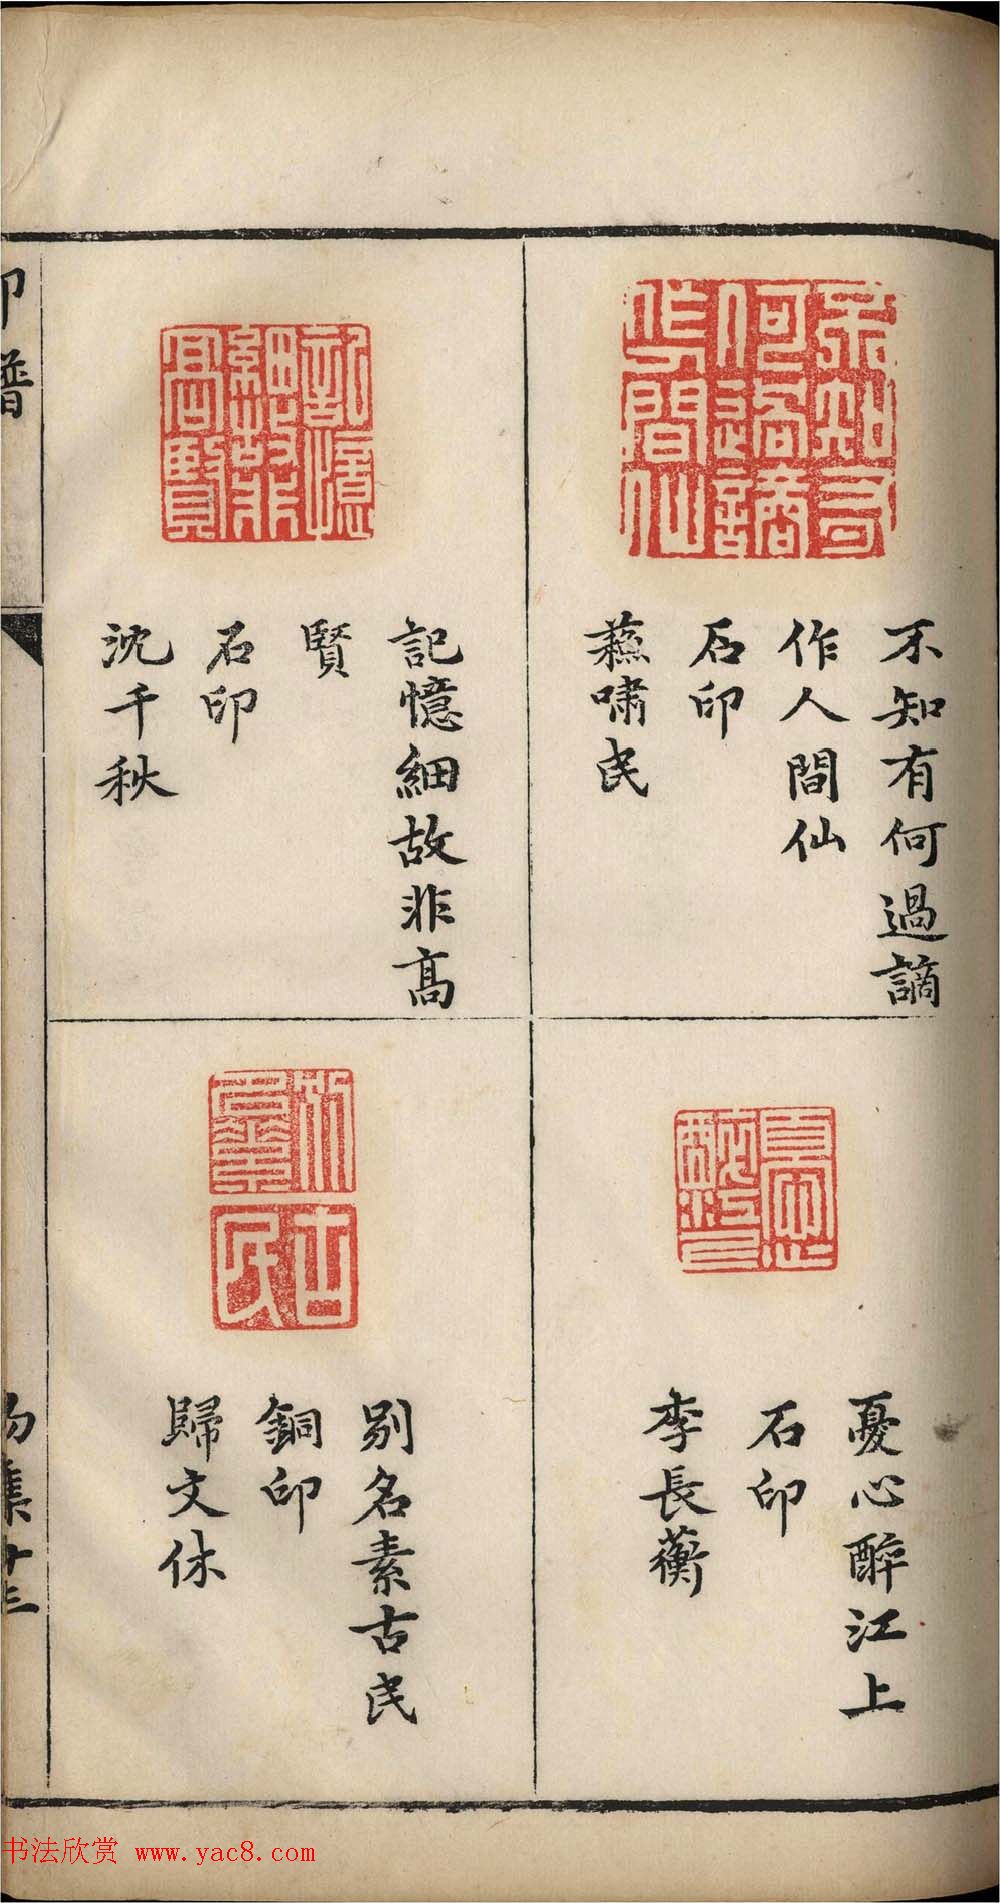 不知有何過謫
作人間仙
石印
蘓嘯民
憂心醉江上
石印
李長蘅
記憶細故非高
賢
石印
沈千秋
別名素古民
銅印
歸文休
印譜
集十三
书法欣赏 www.yac8.com